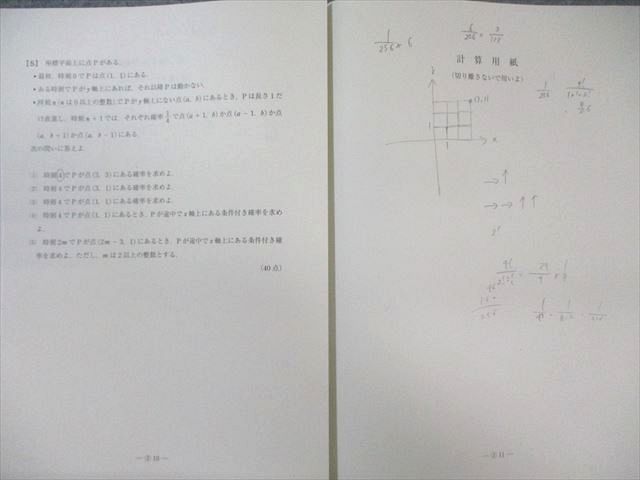 〔5〕 座標平面上に点Pがある。
• 最初,時刻0でPは点(1, 1)にある。
• ある時刻でPがy軸上にあれば,それ以降Pは動かない。
• 時刻n(nは0以上の整数)でPがy軸上にない点(a, b)にあるとき,Pは長さ1だ
け直進し,時刻n+1では,それぞれ確率1/4で点(a+1, b)か点(a-1, b)か点
(a, b+1)か点(a, b-1)にある。
次の問いに答えよ。
(1) 時刻4でPが点(3, 3)にある確率を求めよ。
(2) 時刻4でPが点(3, 1)にある確率を求めよ。
(3) 時刻4でPが点(1, 1)にある確率を求めよ。
(4) 時刻4でPが点(1, 1)にあるとき,Pが途中でx軸上にある条件付き確率を求め
よ。
(5) 時刻2mでPが点(2m-3, 1)にあるとき,Pが途中でx軸上にある条件付き確
率を求めよ。ただし,mは2以上の整数とする。
(40点)
—②10—
1/256 × 6
6/256 = 3/128
計算用紙
(切り離さないで用いよ)
(3, 3)
1
1
x
→ ↑
→ → ↑ ↑
—②11—